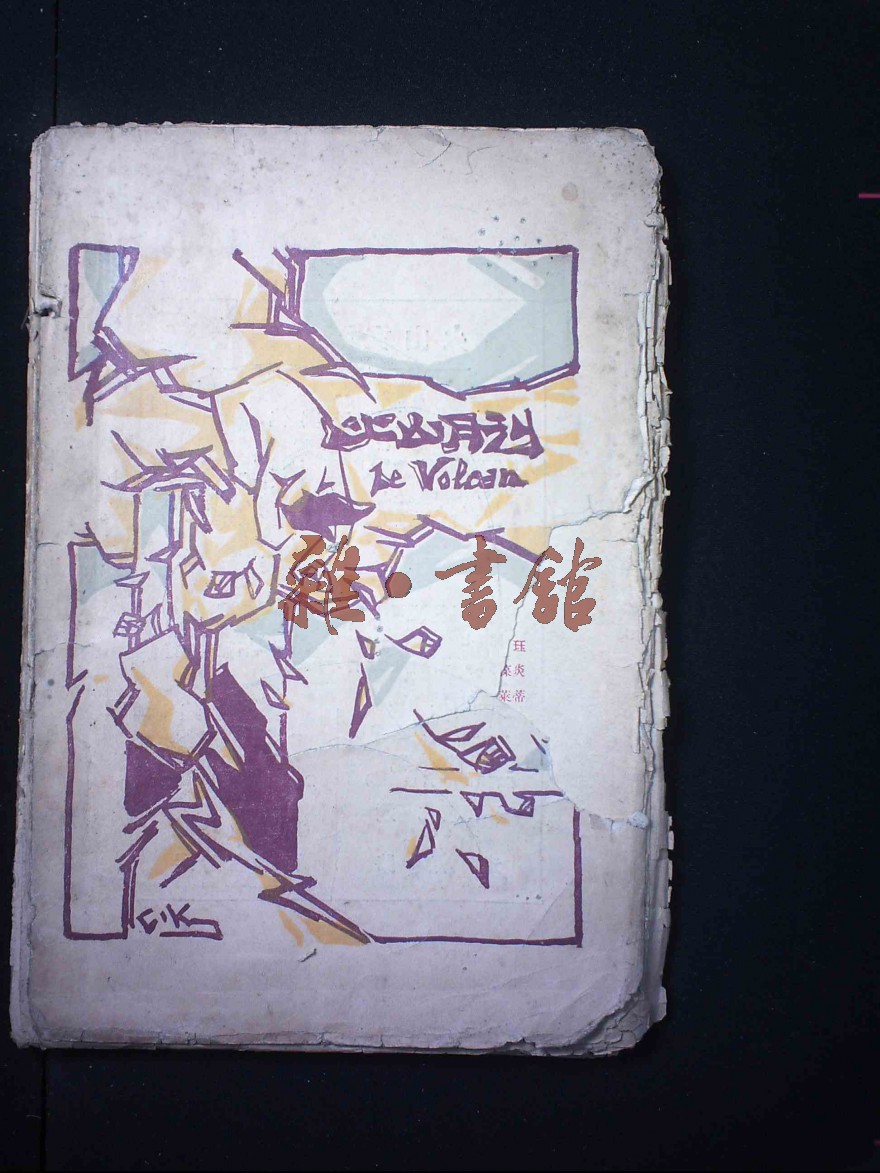 火山月刊
Le Volcan
雜·書館
珏
菜炎
萊蒂
C·K